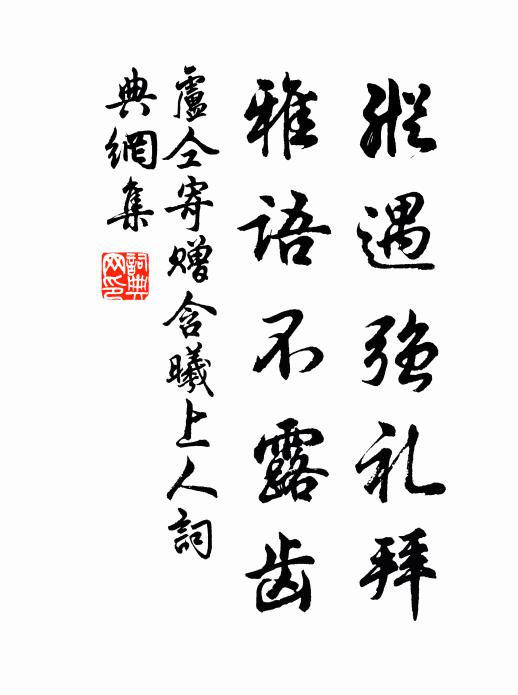 縱遇强礼拜
雅语不露齿
盧仝寄赠含曦上人詞
典網集
詞典网印